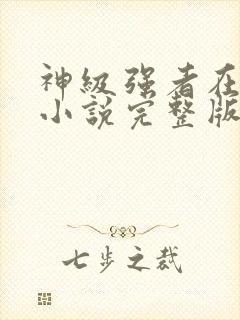 神级强者在
小说完整版
七步之裁